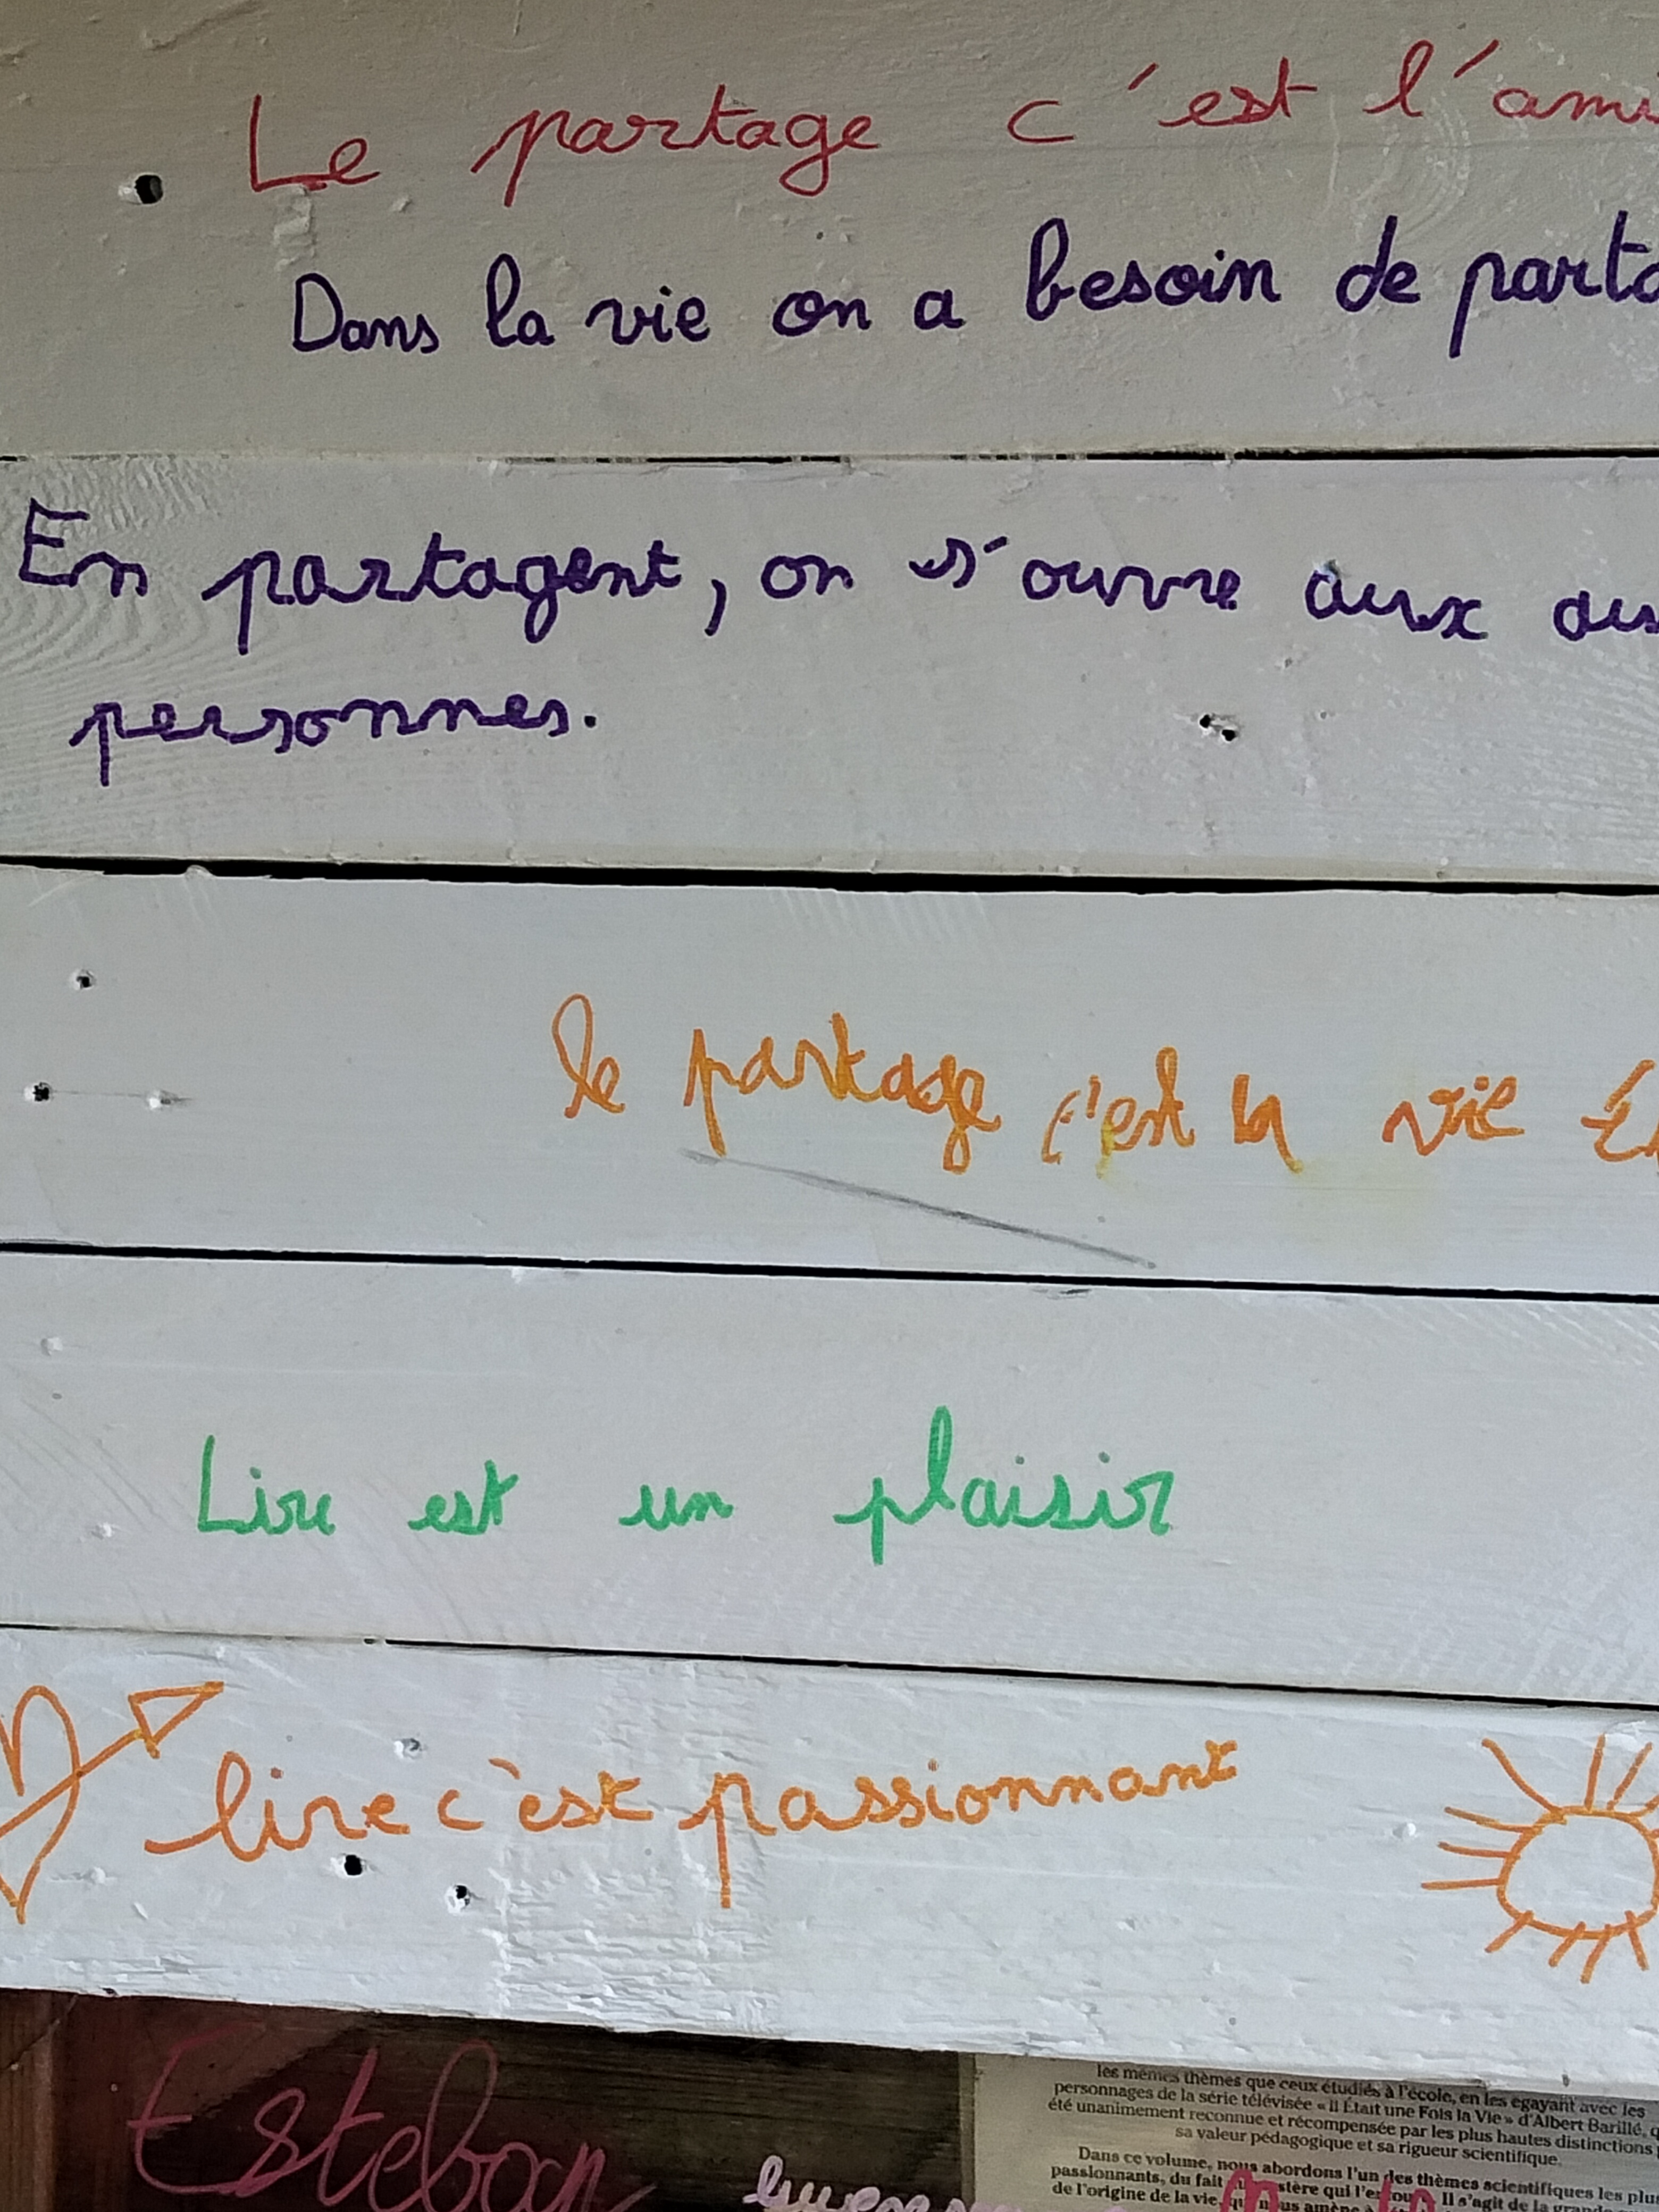 Le partage c'est l'ami
Dans la vie on a besoin de parta
En partagent, on s'ouvre aux au
personnes.
le partage c'est la vie
Lire est un plaisir
lire c'est passionnant
Esteban
les mêmes thèmes que ceux étudiés à l'école, en les égayant avec les
personnages de la série télévisée « Il Était une Fois la Vie » d'Albert Barillé, q
été unanimement reconnue et récompensée par les plus hautes distinctions
sa valeur pédagogique et sa rigueur scientifique.
Dans ce volume, nous abordons l'un des thèmes scientifiques les plus
passionnants, du fait stère qui l'entoure. Il s'agit de la
de l'origine de la vie, amène à